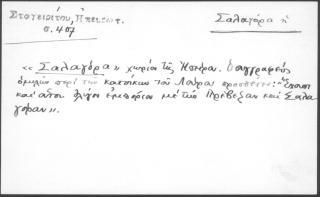 Στογειρίτου, Ηπειρωτ.
σ. 407
Σαλαγόρα ἡ
«Σαλαγόρα» χωρίον τῆς Ἠπείρου. ὁ συγγραφεὺς
ὁμιλῶν περὶ τῶν κατοίκων τοῦ Λούρου προσθέτει: "Ἔχουσι
καὶ αὐτοὶ ὀλίγον ἐμπόριον μὲ τὴν Πρέβεζαν καὶ Σαλα
γόραν".